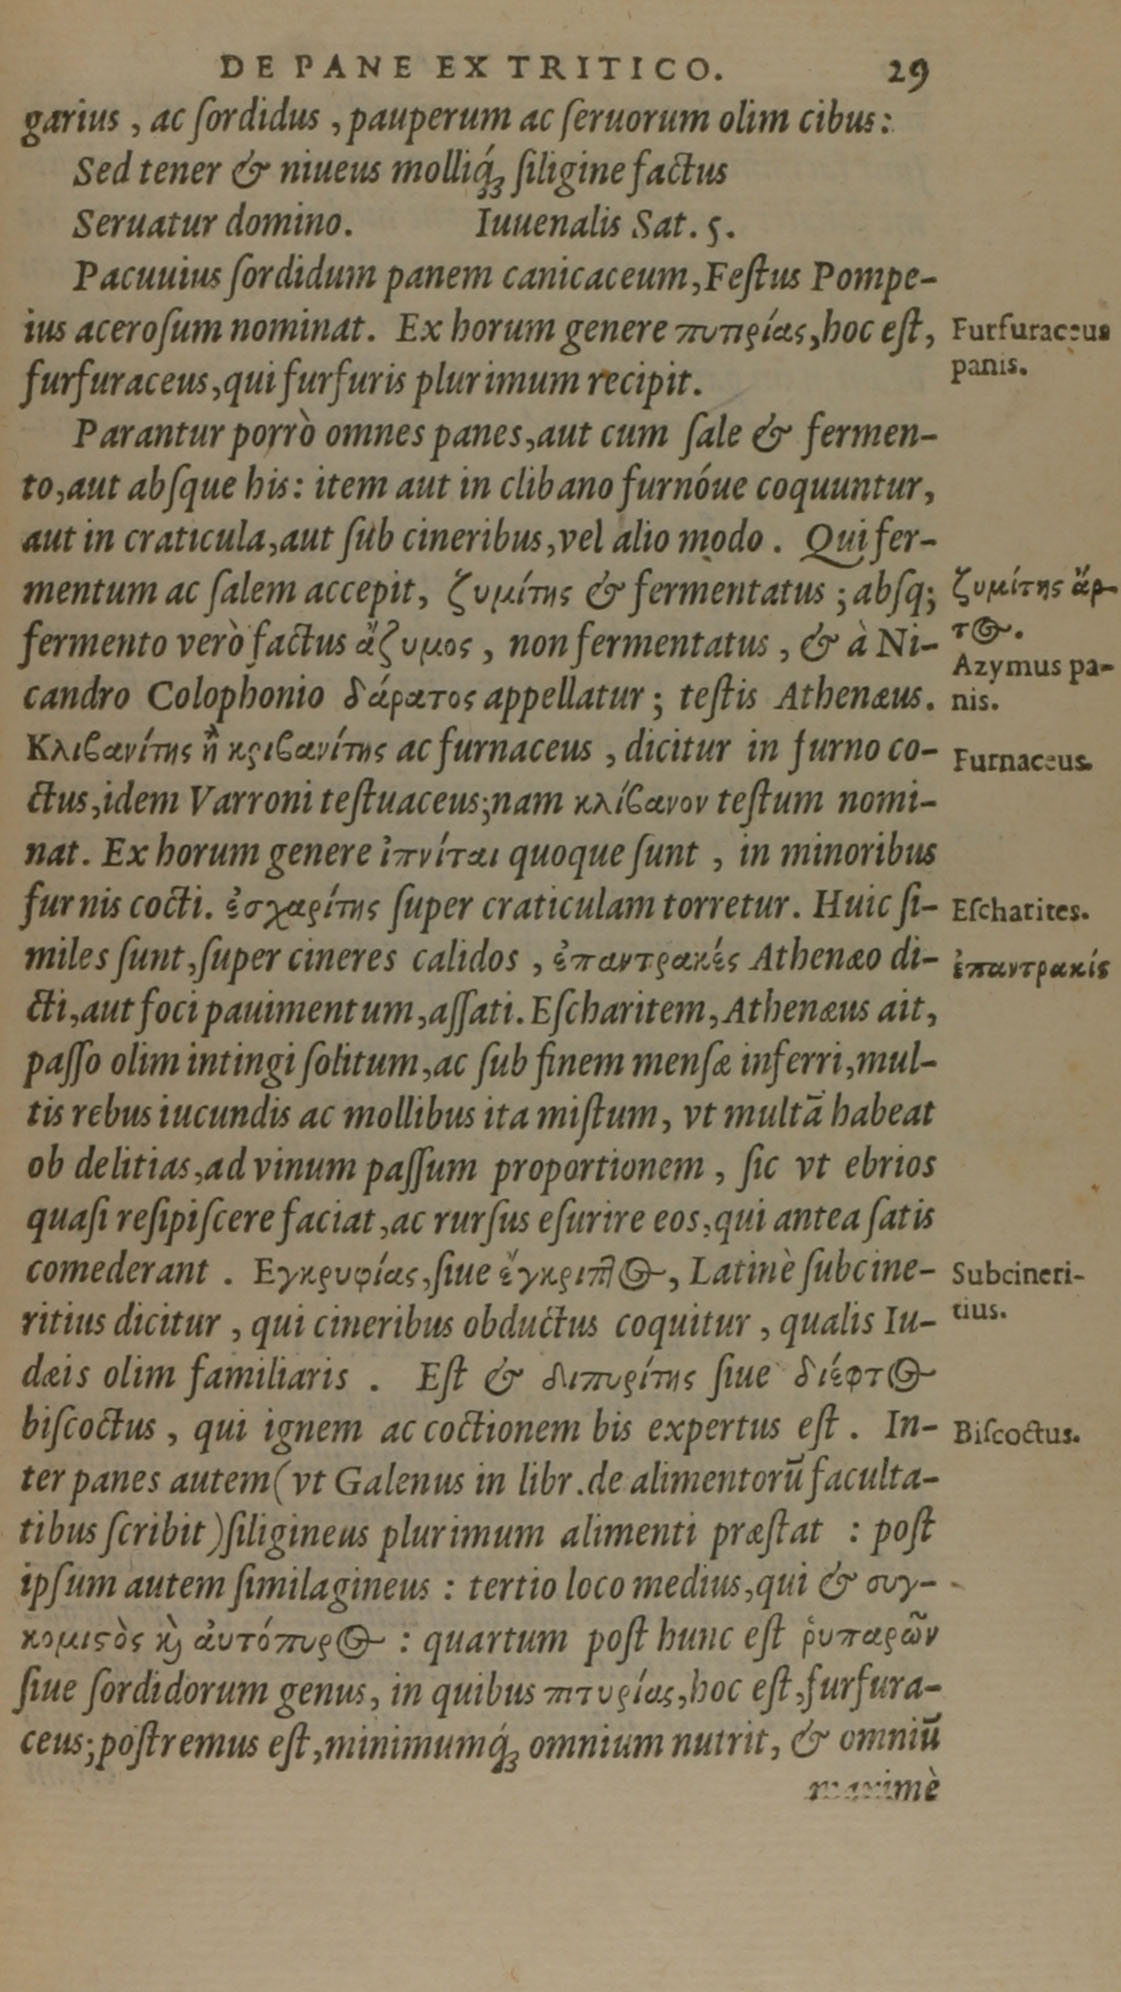 DE PANE EX TRITICO. 29
garius, ac ſordidus, pauperum ac ſeruorum olim cibus:
Sed tener & niueus molliq́ꝫ ſiligine factus
Seruatur domino. Iuuenalis Sat. 5.
Pacuuius ſordidum panem canicaceum, Feſtus Pompe-
ius aceroſum nominat. Ex horum genere πυπρίας, hoc eſt,
furfuraceus, qui furfuris plurimum recipit.
Furfuraceus
panis.
Parantur porrò omnes panes, aut cum ſale & fermen-
to, aut abſque his: item aut in clibano furnóue coquuntur,
aut in craticula, aut ſub cineribus, vel alio modo. Qui fer-
mentum ac ſalem accepit, ζυμίτης & fermentatus; abſq;
fermento verò factus ἄζυμος, non fermentatus, & à Ni-
candro Colophonio δάρατος appellatur; teſtis Athenæus.
ζυμίτης ἄρ-
τος.
Azymus pa-
nis.
Κλιβανίτης ἢ κριβανίτης ac furnaceus, dicitur in furno co-
ctus, idem Varroni teſtuaceus; nam κλίβανον teſtum nomi-
nat. Ex horum genere ἰπνίται quoque ſunt, in minoribus
furnis cocti. ἐσχαρίτης ſuper craticulam torretur. Huic ſi-
miles ſunt, ſuper cineres calidos, ἐπαντρακίς Athenæo di-
cti, aut foci pauimentum, aſſati. Eſcharitem, Athenæus ait,
Furnaceus.
Eſcharites.
ἐπαντρακίς
paſſo olim intingi ſolitum, ac ſub finem menſæ inferri, mul-
tis rebus iucundis ac mollibus ita miſtum, vt multā habeat
ob delitias, ad vinum paſſum proportionem, ſic vt ebrios
quaſi reſipiſcere faciat, ac rurſus eſurire eos, qui antea ſatis
comederant. Εγκρυφίας, ſiue ἔγκριπτος, Latinè ſubcine-
ritius dicitur, qui cineribus obductus coquitur, qualis Iu-
dæis olim familiaris. Eſt & διπυρίτης ſiue δίεφτος
biſcoctus, qui ignem ac coctionem bis expertus eſt. In-
Subcineri-
tius.
Biſcoctus.
ter panes autem (vt Galenus in libr. de alimentorū faculta-
tibus ſcribit) ſiligineus plurimum alimenti præſtat : poſt
ipſum autem ſimilagineus : tertio loco medius, qui & συγ-
κομιστὸς καὶ αὐτόπυρος : quartum poſt hunc eſt ῥυπαρῶν
ſiue ſordidorum genus, in quibus πιτυρίας, hoc eſt, furfura-
ceus; poſtremus eſt, minimumq́ꝫ omnium nutrit, & omniū
maximè